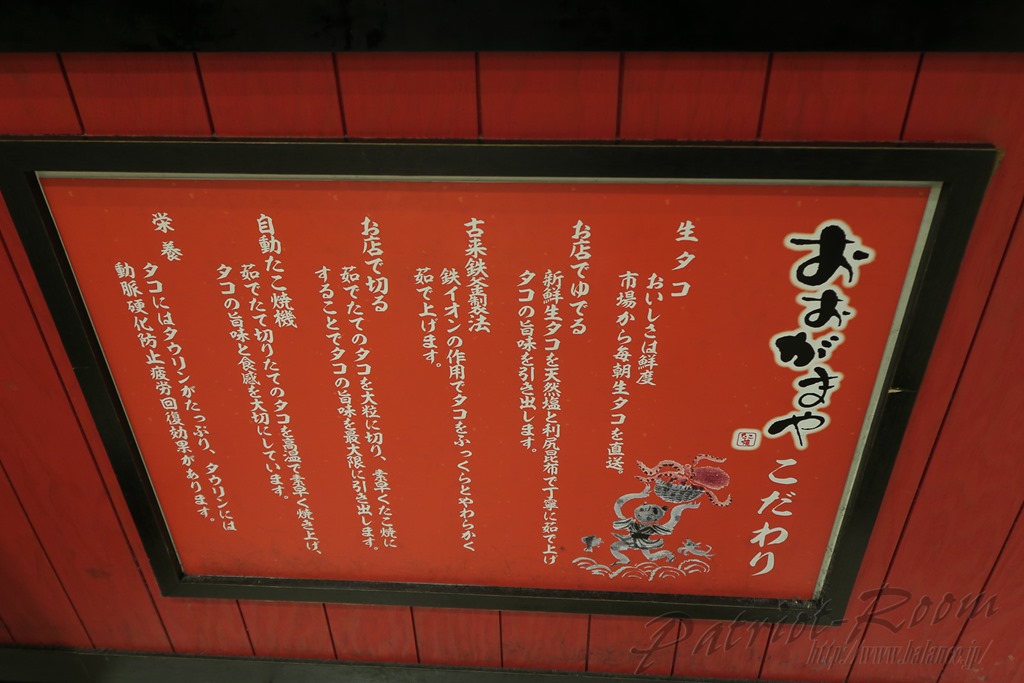 おおがまや こだわり
生タコ
おいしさは鮮度
市場から毎朝生タコを直送。
お店でゆでる
新鮮生タコを天然塩と利尻昆布で丁寧に茹で上げ
タコの旨味を引き出します。
古来鉄釜製法
鉄イオンの作用でタコをふっくらとやわらかく
茹で上げます。
お店で切る
茹でたてのタコを大粒に切り、素早くたこ焼に
することでタコの旨味を最大限に引き出します。
自動たこ焼機
茹でたて切りたてのタコを高温で素早く焼き上げ、
タコの旨味と食感を大切にしています。
栄養
タコにはタウリンがたっぷり、タウリンには
動脈硬化防止疲労回復効果があります。
Patriot Room
http://www.balance.jp/